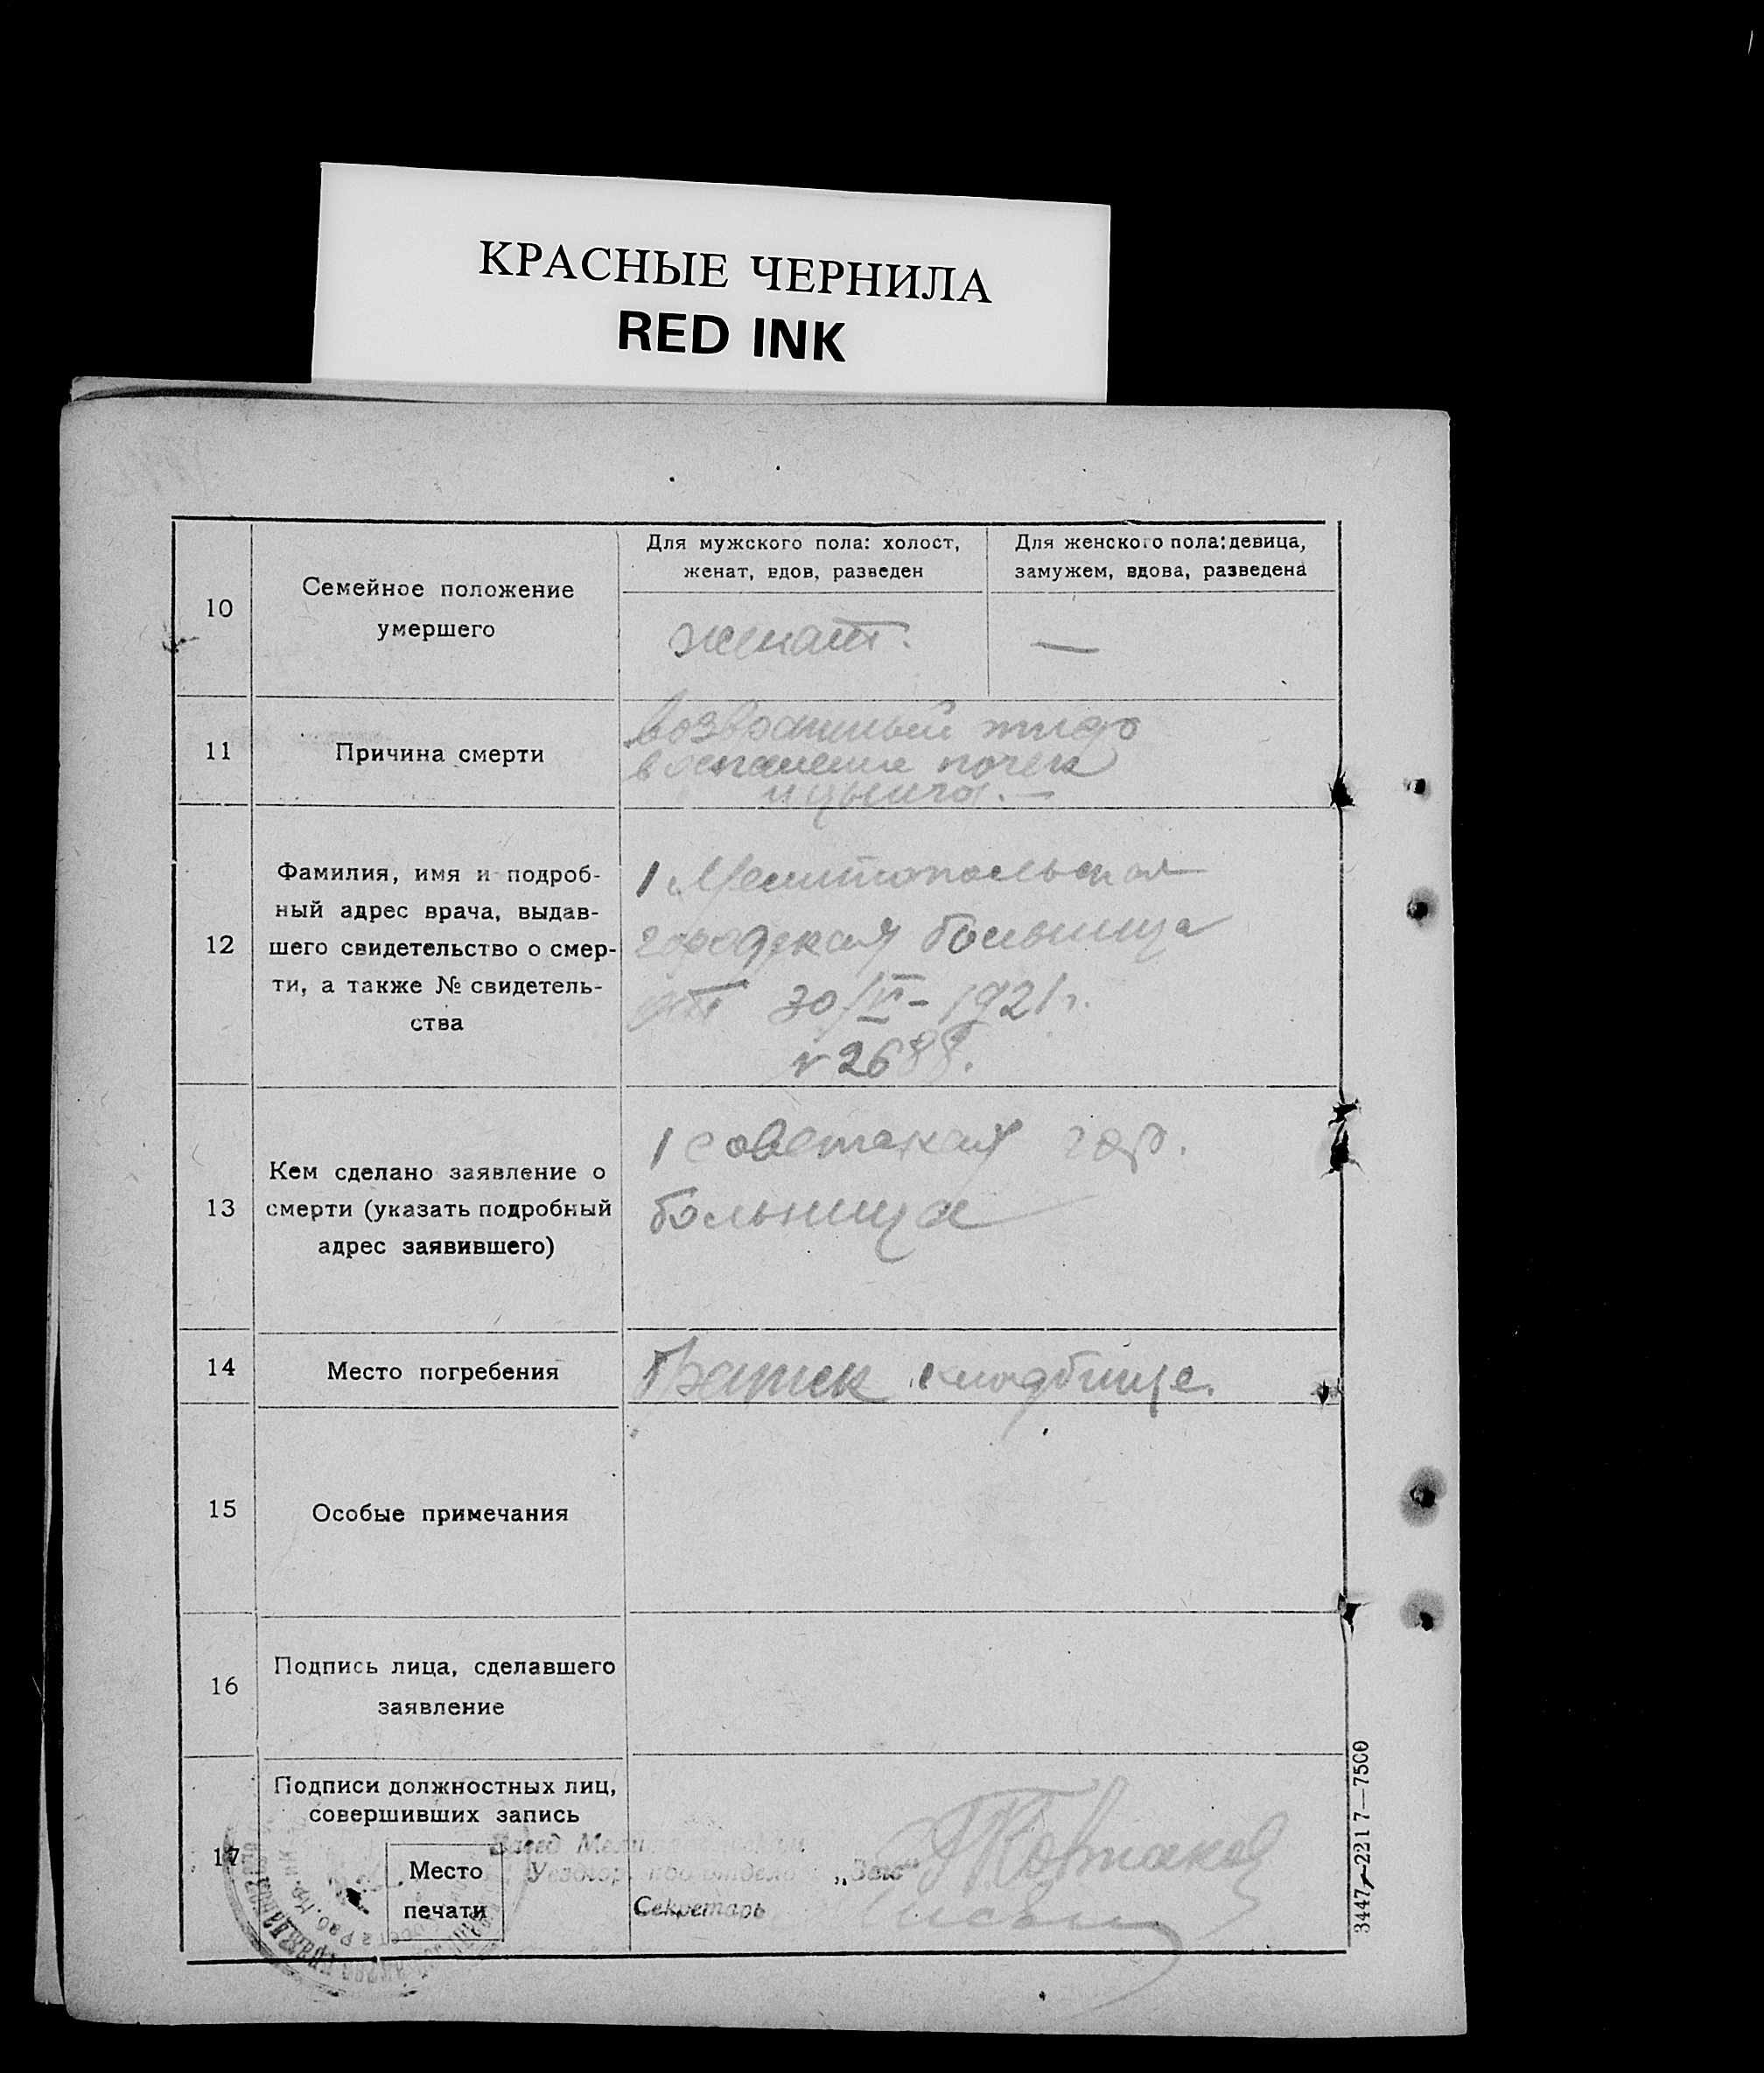 КРАСНЫЕ ЧЕРНИЛА
RED INK
10
Семейное положение
умершего
Для мужского пола: холост,
женат, вдов, разведен
Для женского пола: девица,
замужем, вдова, разведена
женат.
—
11
Причина смерти
возвратный тиф
воспаление почек
и цынга. —
12
Фамилия, имя и подроб-
ный адрес врача, выдав-
шего свидетельство о смер-
ти, а также № свидетель-
ства
1 Мелитопольская
городская больница
от 30/VI - 1921 г.
№ 2688.
13
Кем сделано заявление о
смерти (указать подробный
адрес заявившего)
1 советская гор.
больница
14
Место погребения
Братск кладбище.
15
Особые примечания
16
Подпись лица, сделавшего
заявление
17
Подписи должностных лиц,
совершивших запись
Место
печати
Завед
„Загс“
Секретарь
3447—221 7—7500